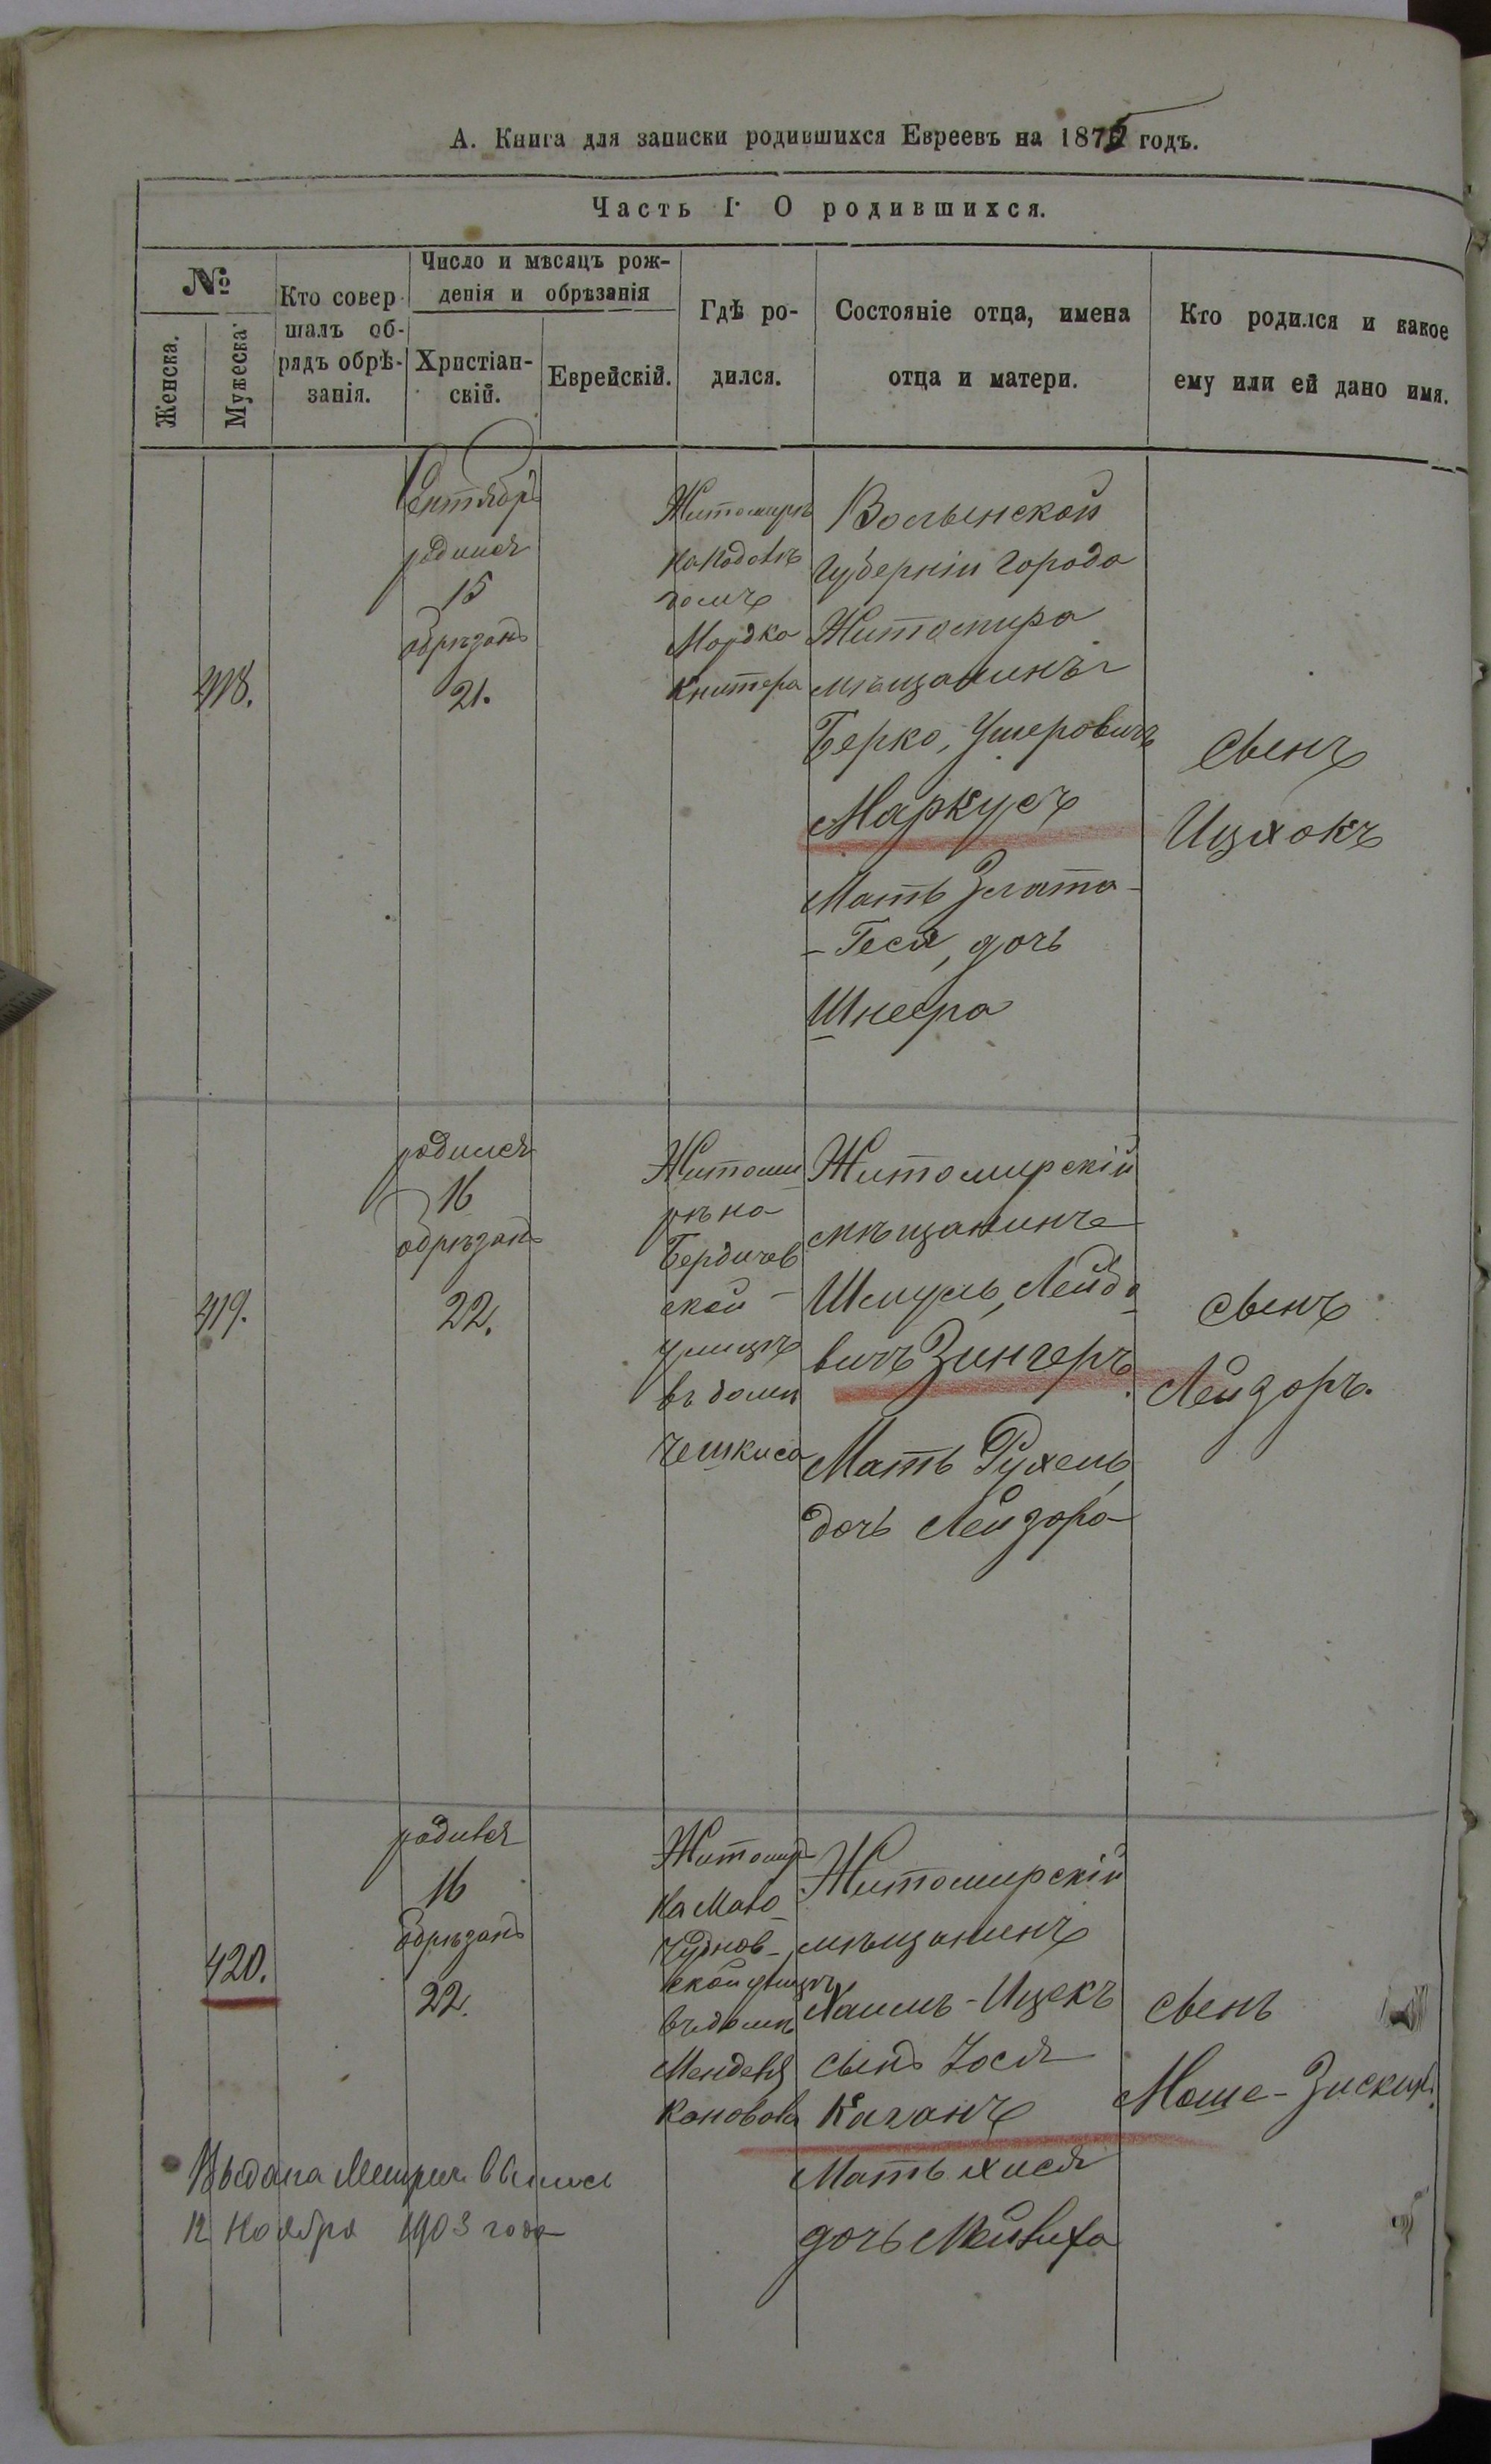 А. Книга для записки родившихся Евреевъ на 1875 годъ.
Часть I. О родившихся.
№
Женска.
Мужеска
Кто совер
шалъ об-
рядъ обрѣ-
занія.
Число и мѣсяцъ рож-
денія и обрѣзанія
Христіан-
скій.
Еврейскій.
Гдѣ ро-
дился.
Состояніе отца, имена
отца и матери.
Кто родился и какое
ему или ей дано имя.
418.
Сентябрь
родился
15
обрѣзанъ
21.
Житомирѣ
домѣ
Мордка
Волынской
Губерніи города
Житомира
мѣщанинъ
Берко, Ушеровичъ
Маркусъ
Мать Злата-
-Геся, дочь
Шнеера
сынъ
Ицхокъ
419.
родился
16
обрѣзанъ
22.
Житоми
рѣ на
Бердичев
ской
улицѣ
въ домѣ
Житомирскій
мѣщанинъ
Шмуль, Лейбо
вичъ Зингеръ
Мать Рухель,
дочь Лейзора
сынъ
Лейзоръ.
420.
родился
16
обрѣзанъ
22.
Житомир
на Мало
Чуднов-
ской улицѣ
въ домѣ
Менделя
Житомирскій
мѣщанинъ
Хаимъ-Ицекъ
сынъ Іося
Каганъ
Мать Хися
дочь
сынъ
Моше-Зискинд.
Выдана Метрич. выпись
12 Ноября 1903 года